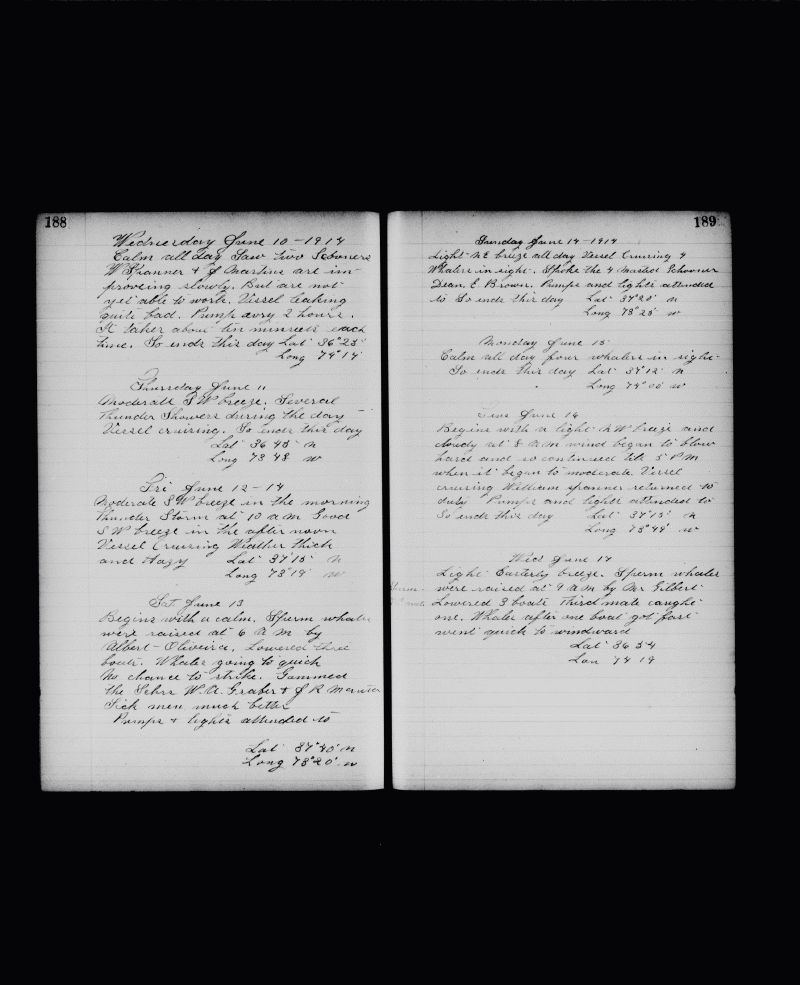 188
Wednesday June 10-1914
Calm all day Saw two Schoners
W Spanner & J Martins are im-
proveing slowly. But are not
yet able to work. Vessel leaking
quite bad. Pump avry 2 hours.
It takes about tin minseets each
time. So ends this day Lat 36°25'
Long 74°14'
Thursday June 11
Moderate SW breeze. Several
Thunder Showers during the day
Vessel cruising. So ends this day
Lat 36 45 N
Long 73 48 W
Fri June 12-14
Moderate SW breeze in the morning
Thunder Storm at 10 a m Good
SW breeze in the after noon
Vessel Cruising Weather thick
and Hazy Lat 37°15' N
Long 73°19' W
Sat June 13
Begins with a calm. Sperm whales
were raised at 6 A M by
Albert Oliveira. Lowered three
boats. Whales going to quick
No chance to strike. Gammed
the Schrs W. A. Graber & J R Manta
Sick men much better
Pumps & lights attended to
Lat 37°40' N
Long 73°20' W
189
Sunday June 14-1914
Light NE breeze all day Vessel Cruising 4
Whalers in sight. Spoke the 4 Masted Schouner
Dean. E Brown. Pumps and lights attended
to So ends this day Lat 37°20' N
Long 73°25' W
Monday June 15
Calm all day four whalers in sight
So ends this day Lat 37°12' N
Long 74°00' W
Tues June 16
Begins with a light NW breeze and
cloudy at 8 a.m wind began to blow
hard and so continued till 5 P M
when it began to moderate. Vessel
cruising William spanner returned to
duty Pumps and lights attended to
So ends this day Lat 37°15' N
Long 73°49' W
Wed June 17
Light Easterly breeze. Sperm whales
were raised at 9 A M by Mr Gilbert
Lowered 3 boats Third mate caught
one. Whales after one boat got fast
went quick to windward
Lat 36 54
Lon 74 19